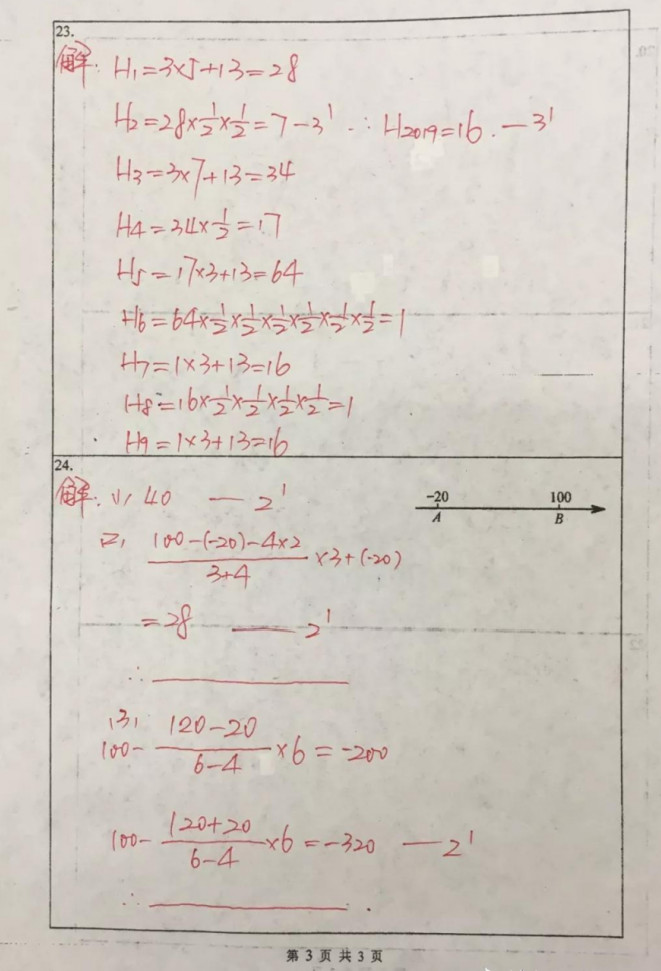 23.
解: H₁=3×5+13=28
H₂=28×1/2×1/2=7 —3' ∴H₂₀₁₉=16. —3'
H₃=3×7+13=34
H₄=34×1/2=17
H₅=17×3+13=64
H₆=64×1/2×1/2×1/2×1/2×1/2×1/2=1
H₇=1×3+13=16
H₈=16×1/2×1/2×1/2×1/2=1
H₉=1×3+13=16
24.
解: (1) 40 —2'
-20 100
A B
(2) (100-(-20)-4×2)/(3+4)×3+(-20)
=28 —2'
∴
(3) 100-(120-20)/(6-4)×6=-200
100-(120+20)/(6-4)×6=-320 —2'
∴ .
第 3 页 共 3 页